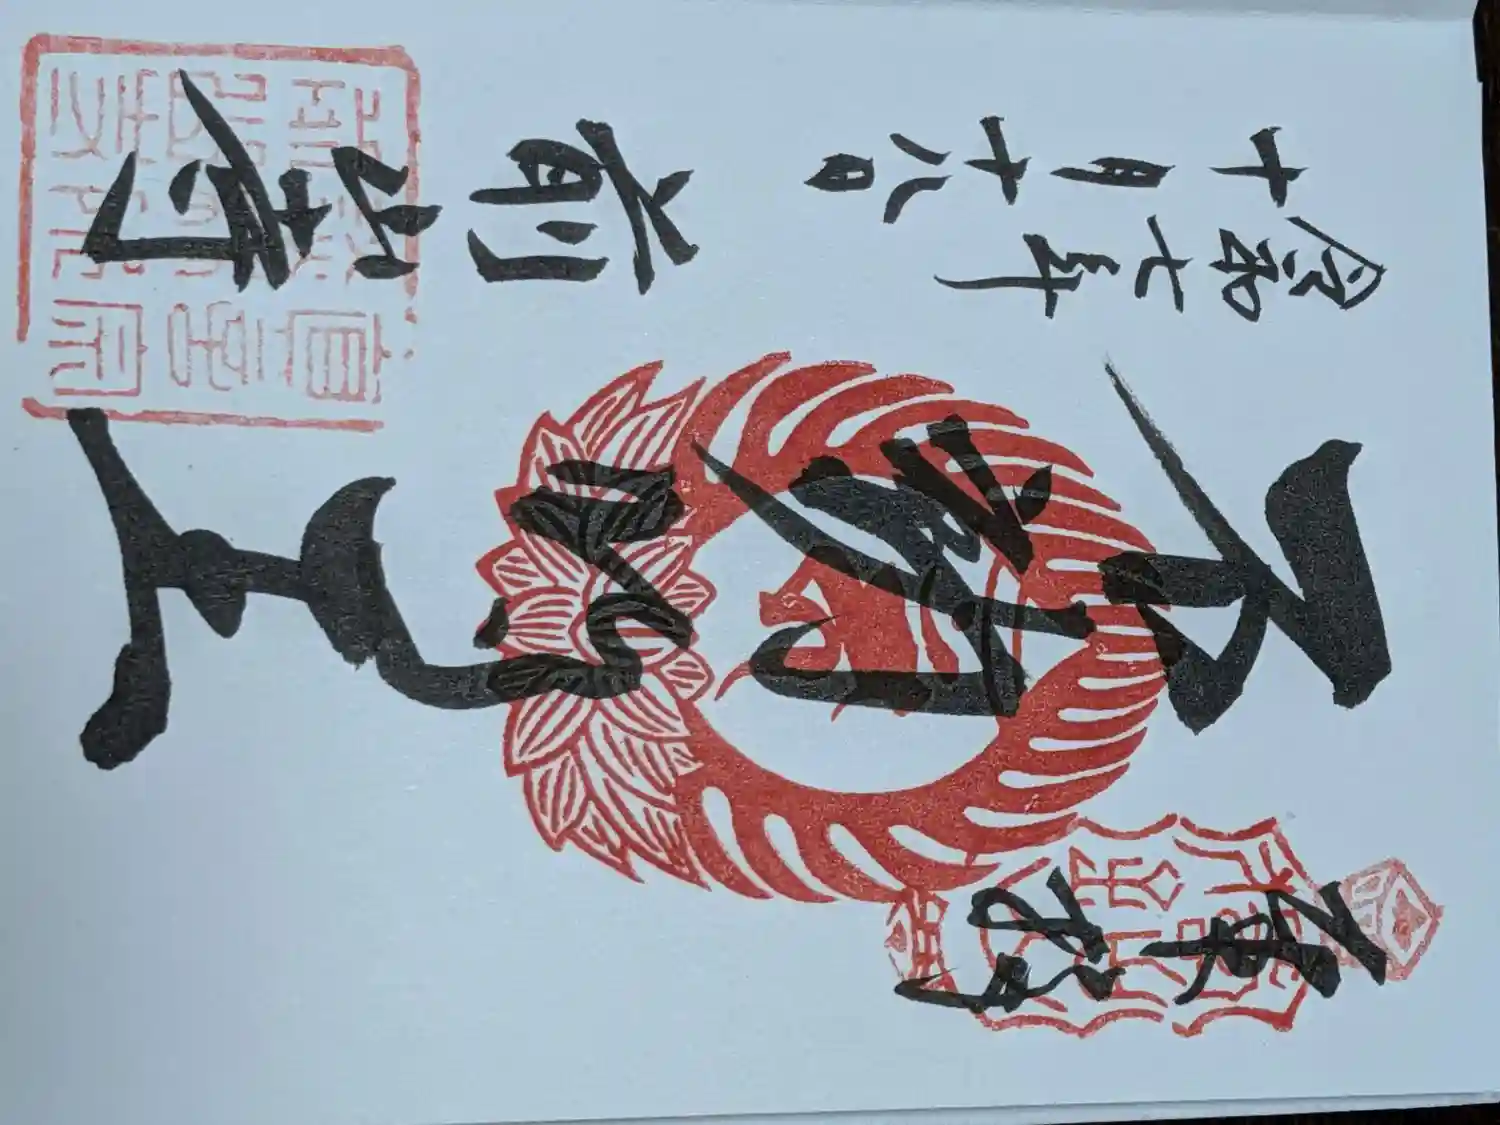 奉拝
不動明王
令和七年
十月十八日
前山寺